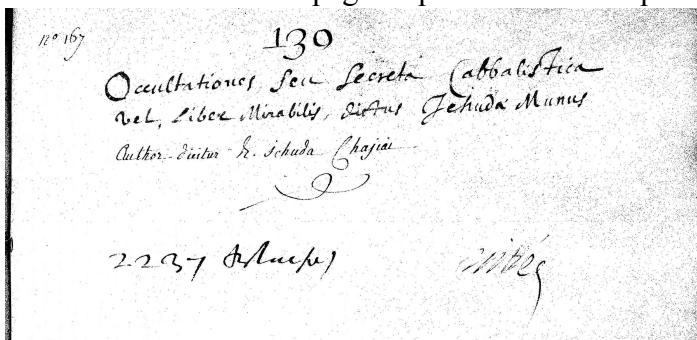 nº 167
130
Occultationes, seu Secreta Cabbalistica
vel, Liber Mirabilis, dictus Jehudæ Munus
Author dicitur R. Jehuda Chajiai
2237